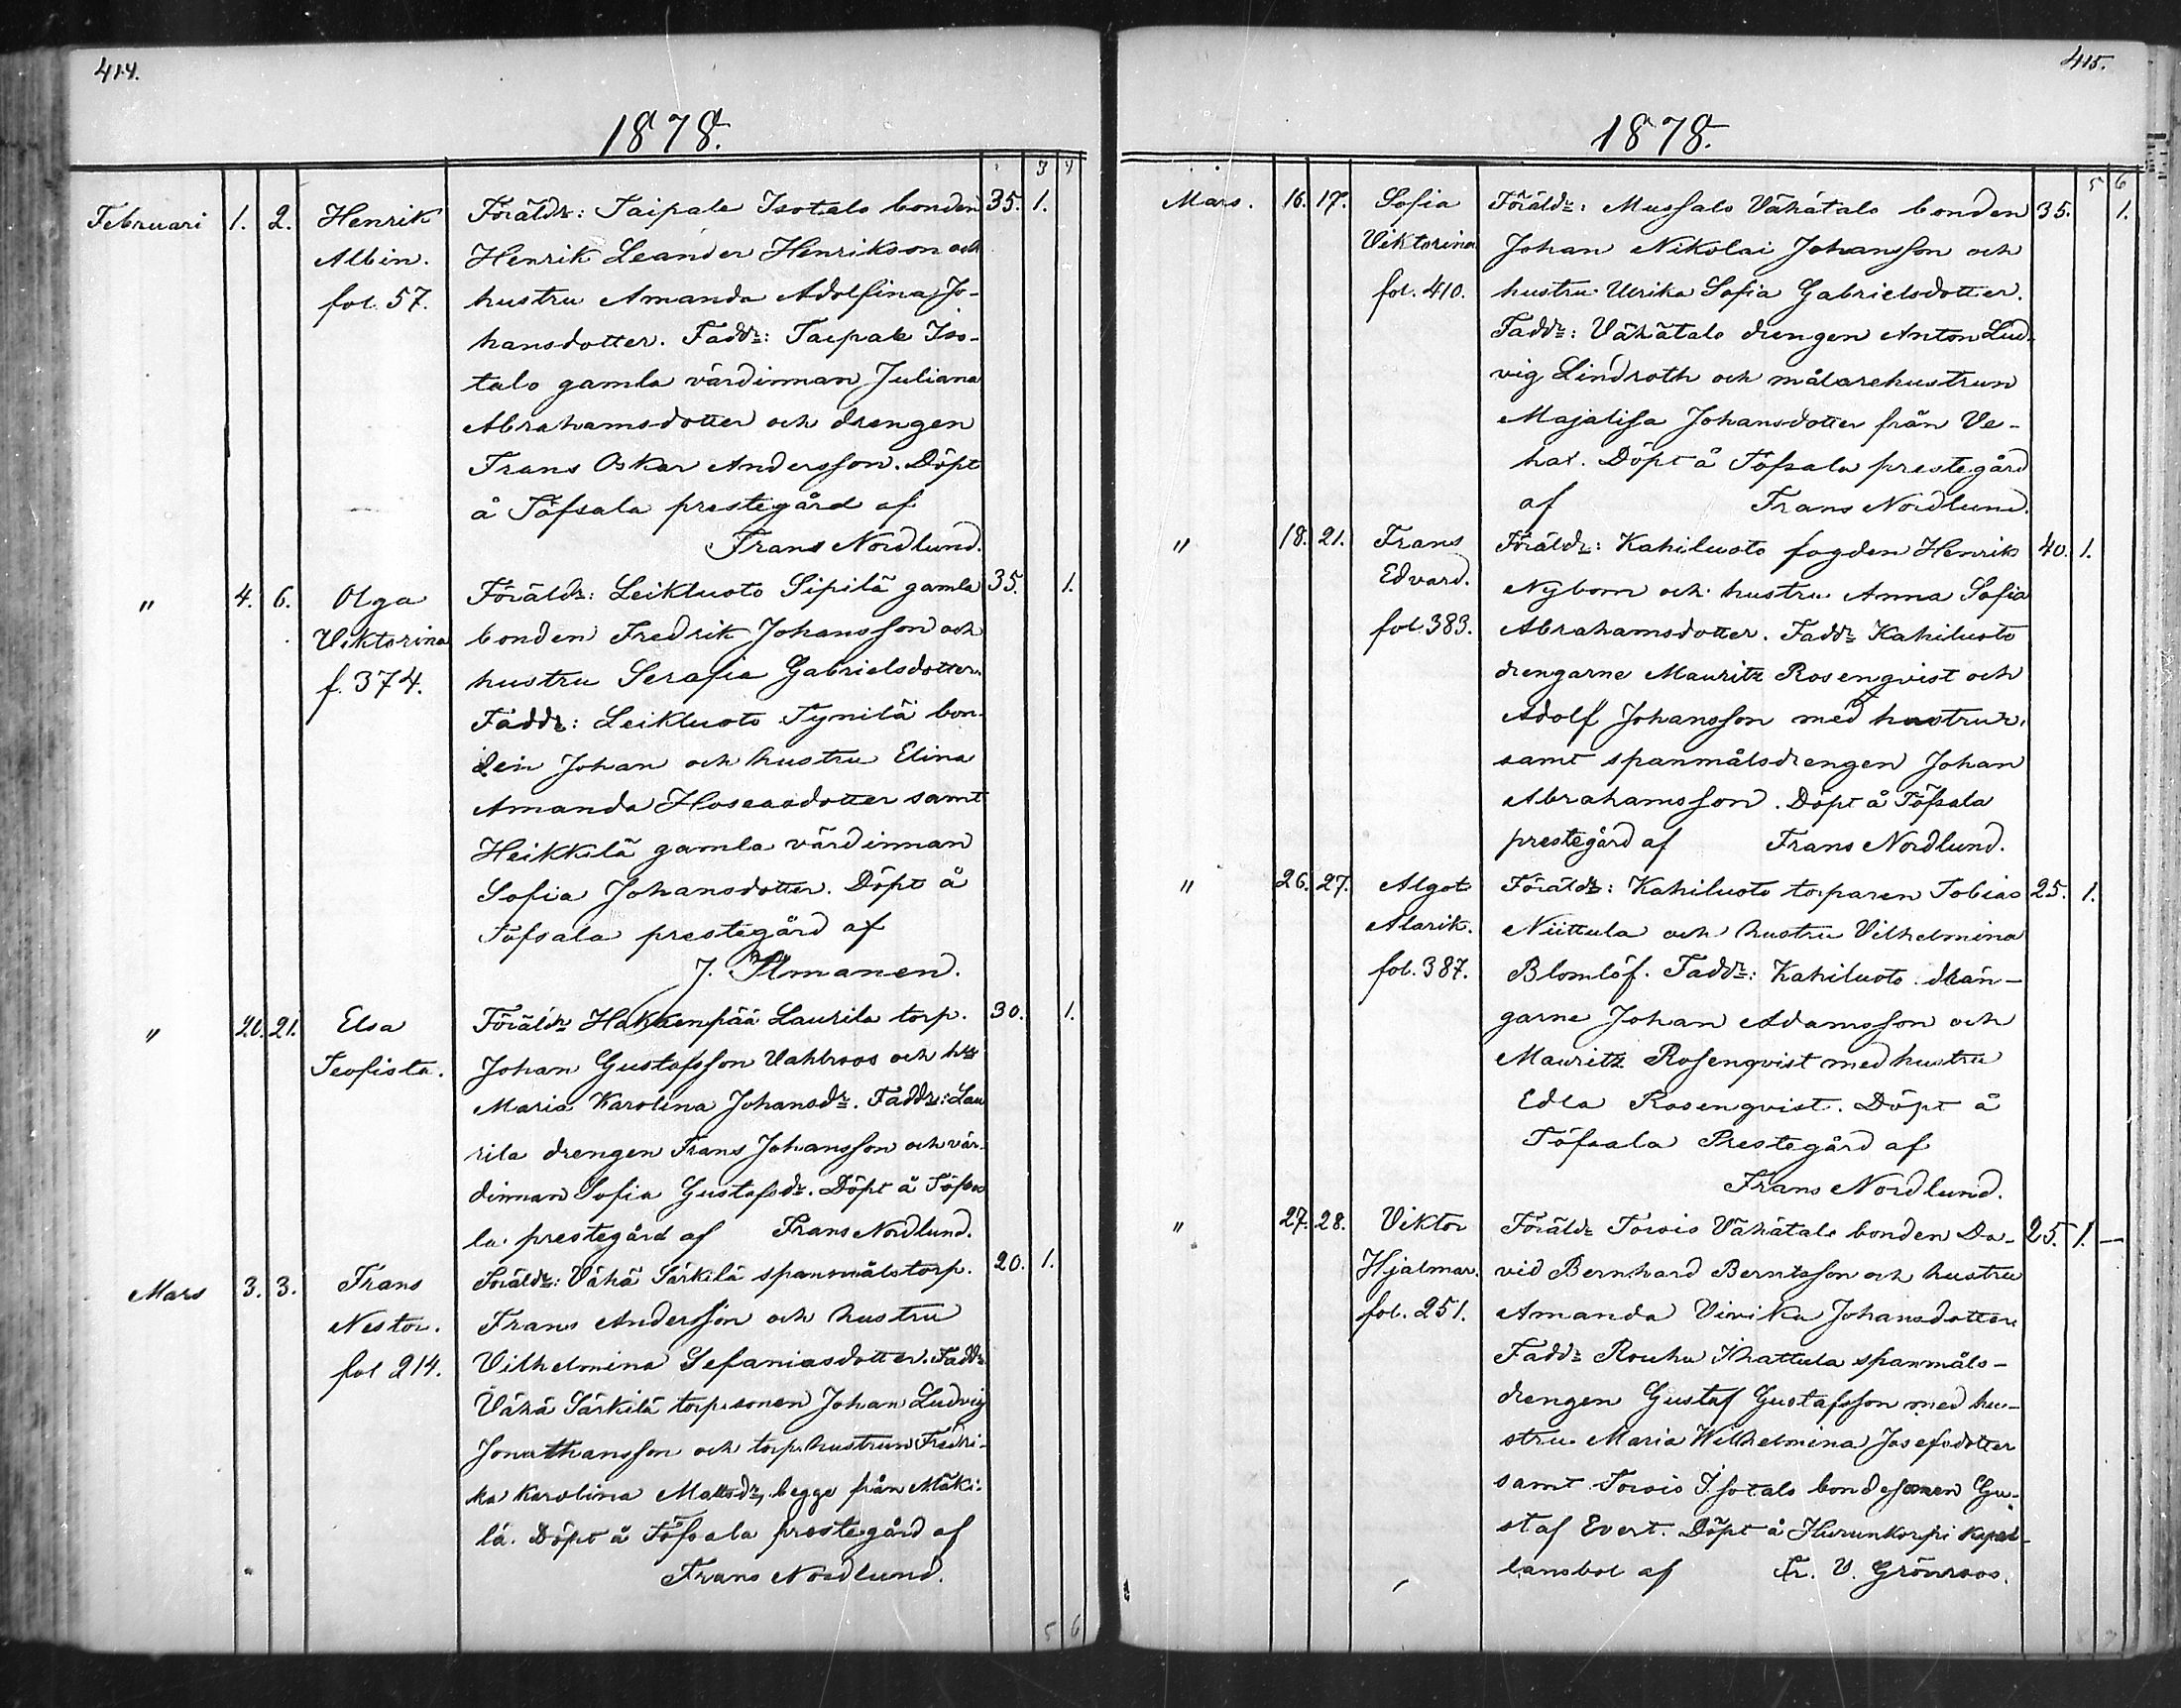 414.
1878.
3 4
Februari 1. 2. Henrik Föräldr: Taipale Isotalo bonden 35. 1.
Albin. Henrik Leander Henrikson och
fol. 57. hustru Amanda Adolfina Jo-
hansdotter. Faddr: Taipale Iso-
talo gamla värdinnan Juliana
Abrahamsdotter och drengen
Frans Oskar Andersson. Döpt
å Töfsala prestegård af
Frans Nordlund.
" 4. 6. Olga Föräldr: Leikluoto Sipilä gamla 35. 1.
Viktorina bonden Fredrik Johansson och
f. 374. hustru Serafia Gabrielsdotter.
Faddr: Leikluoto Tynilä bon-
den Johan och hustru Elina
Amanda Hoseasdotter samt
Heikkilä gamla värdinnan
Sofia Johansdotter. Döpt å
Töfsala prestegård af
J. Ilmanen.
" 20. 21. Elsa Föräldr Hakkenpää Laurila torp. 30. 1.
Teofista. Johan Gustafsson Vahlroos och hu
Maria Karolina Johansdr. Faddr: Lau
rila drengen Frans Johansson och vär-
dinnan Sofia Gustafsdr. Döpt å Töfsa
la prestegård af Frans Nordlund.
Mars 3. 3. Frans Föräldr: Vähä Särkilä spanmålstorp. 20. 1.
Nestor. Frans Andersson och hustru
fol 214. Vilhelmina Sefaniasdotter. Faddr
Vähä Särkilä torp.sonen Johan Ludvig
Jonathansson och torp.hustrun Fredri-
ka Karolina Mattsdr, begge från Mäki-
lä. Döpt å Töfsala prestegård af
Frans Nordlund.
5 6
415.
1878.
5 6
Mars. 16. 17. Sofia Föräldr: Mussalo Vähätalo bonden 35. 1.
Viktorina Johan Nikolai Johansson och
fol. 410. hustru Ulrika Sofia Gabrielsdotter.
Faddr: Vähätalo drengen Anton Lud-
vig Lindroth och målarehustrun
Majalisa Johansdotter från Ve-
hat. Döpt å Töfsala prestegård
af Frans Nordlund.
" 18. 21. Frans Föräldr: Kahiluoto fogden Henrik 40. 1.
Edvard. Nybom och hustru Anna Sofia
fol. 383. Abrahamsdotter. Faddr Kahiluoto
drengarne Mauritz Rosenqvist och
Adolf Johansson med hustrur.
samt spanmålsdrengen Johan
Abrahamsson. Döpt å Töfsala
prestegård af Frans Nordlund.
" 26. 27. Algot Föräldr: Kahiluoto torparen Tobias 25. 1.
Alarik. Niittula och hustru Vilhelmina
fol. 387. Blomlöf. Faddr: Kahiluoto drän-
garne Johan Adamsson och
Mauritz Rosenqvist med hustru
Edla Rosenqvist. Döpt å
Töfsala Prestegård af
Frans Nordlund.
" 27. 28. Viktor Föräldr Torois Vähätalo bonden Da- 25. 1. —
Hjalmar. vid Bernhard Berntsson och hustru
fol. 251. Amanda Vivika Johansdotter.
Faddr Rouhu Ihattula spanmåls-
drengen Gustaf Gustafsson med hu-
stru Maria Wilhelmina Josefsdotter
samt Torois Isotalo bondesonen Gu-
staf Evert. Döpt å Hurunkorpi kapel-
lansbol af Fr. V. Grönroos.